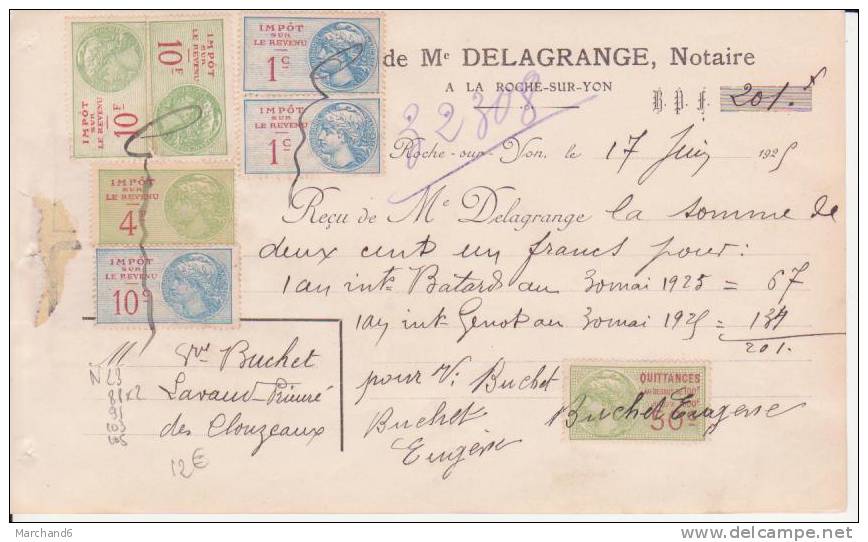 de Me DELAGRANGE, Notaire
A LA ROCHE-SUR-YON
B.P.F. 201.
22308
Roche-sur-Yon, le 17 Juin 1925
Reçu de Me Delagrange la somme de
deux cent un francs pour :
1 an int. Batard au 30 mai 1925 = 67
1 an int. Genot au 30 mai 1925 = 134
201.
Buchet
Lavaud-Prieuré
des Clouzeaux
pour Vve Buchet
Buchet
Eugène
Buchet Eugène
IMPÔT
SUR
LE REVENU
10F
IMPÔT
SUR
LE REVENU
10F
IMPÔT
SUR
LE REVENU
1c
IMPÔT
SUR
LE REVENU
1c
IMPÔT
SUR
LE REVENU
4F
IMPÔT
SUR
LE REVENU
10c
QUITTANCES
50c
N 23
81x2
91
103
105
12€
Marchand6
www.delcampe.net